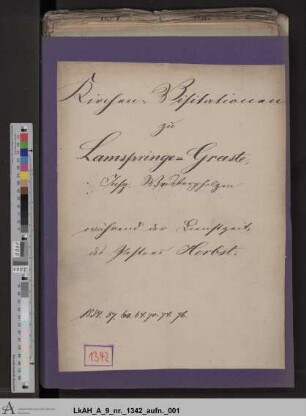 Kirchen-Visitationen
zu
Lamspringe-Graste,
Insp.
während der Dienstzeit
des Pastors Herbst.
1854. 57. 60. 64. 70. 74. 76.
1342
LkAH_A_9_nr._1342_aufn._001